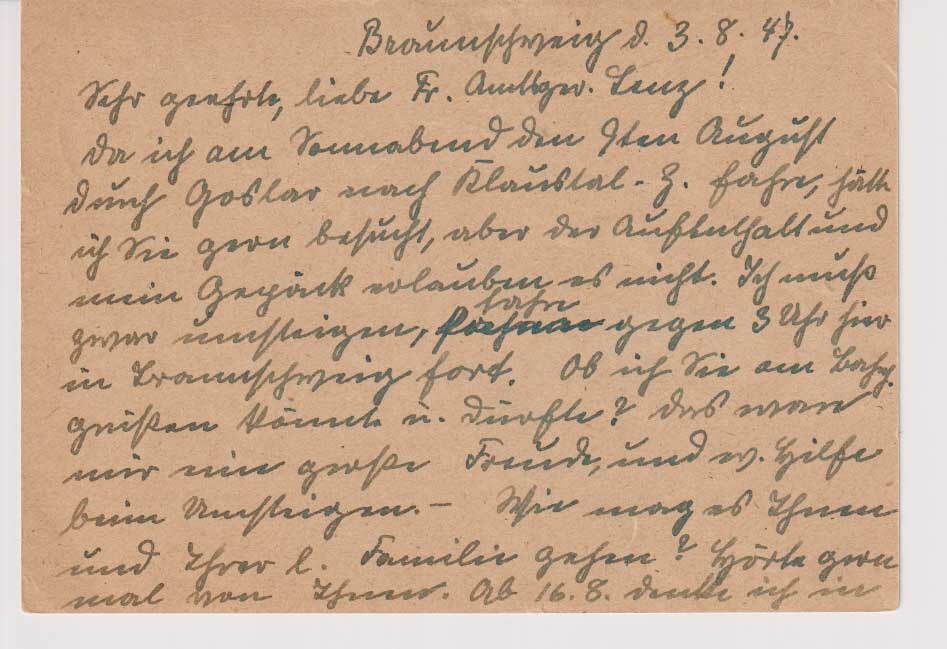 Braunschweig d. 3. 8. 47.
Sehr geehrte, liebe Fr. Amtsger. Lenz!
Da ich am Sonnabend den 9ten August
durch Goslar nach Klaustal-Z. fahre, hätte
ich Sie gern besucht, aber der Aufenthalt und
mein Gepäck erlauben es nicht. Ich muß
fahre
zwar umsteigen, gegen 3 Uhr hier
in Braunschweig fort. Ob ich Sie am Bahnh.
grüßen könnte u. dürfte? Das wäre
mir eine große Freude, und ev. Hilfe
beim Umsteigen. – Wie mag es Ihnen
und Ihrer l. Familie gehen? Hörte gern
mal von Ihnen. Ab 16. 8. denke ich in